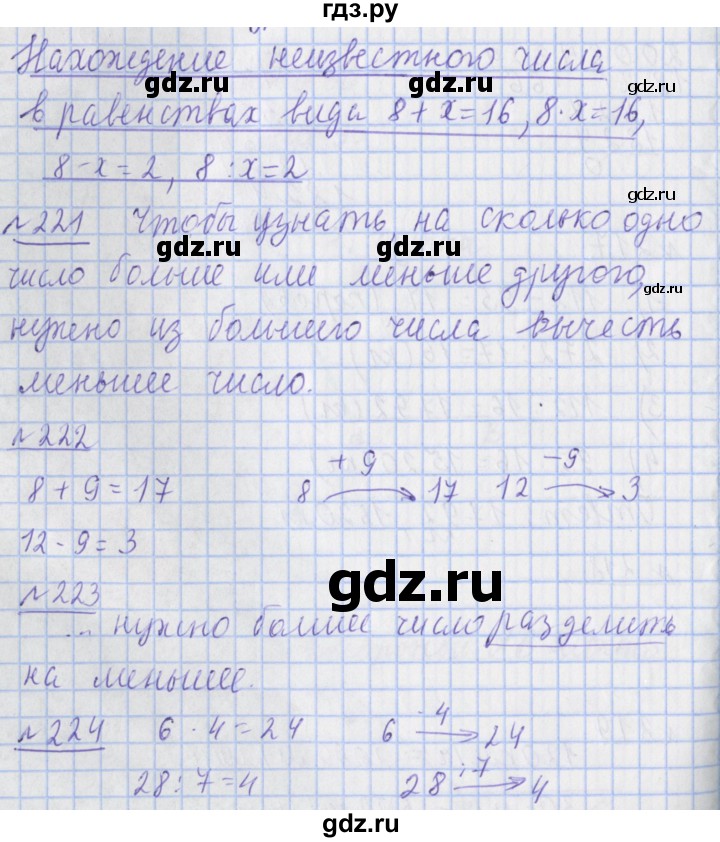 гдз.ру
Нахождение неизвестного числа
в равенствах вида 8 + x = 16, 8 · x = 16,
8 - x = 2, 8 : x = 2
gdz.ru gdz.ru
gdz.ru
gdz.ru
№221 Чтобы узнать, на сколько одно
gdz.ru gdz.ru
число больше или меньше другого,
gdz.ru
нужно из большего числа вычесть
меньшее число.
№222
+ 9 - 9
8 + 9 = 17 8 → 17 12 → 3
12 - 9 = 3
gdz.ru
№223
... нужно большее число разделить
на меньшее.
№224 6 · 4 = 24 6 · 4 → 24
28 : 7 = 4 28 : 7 → 4
gdz.ru